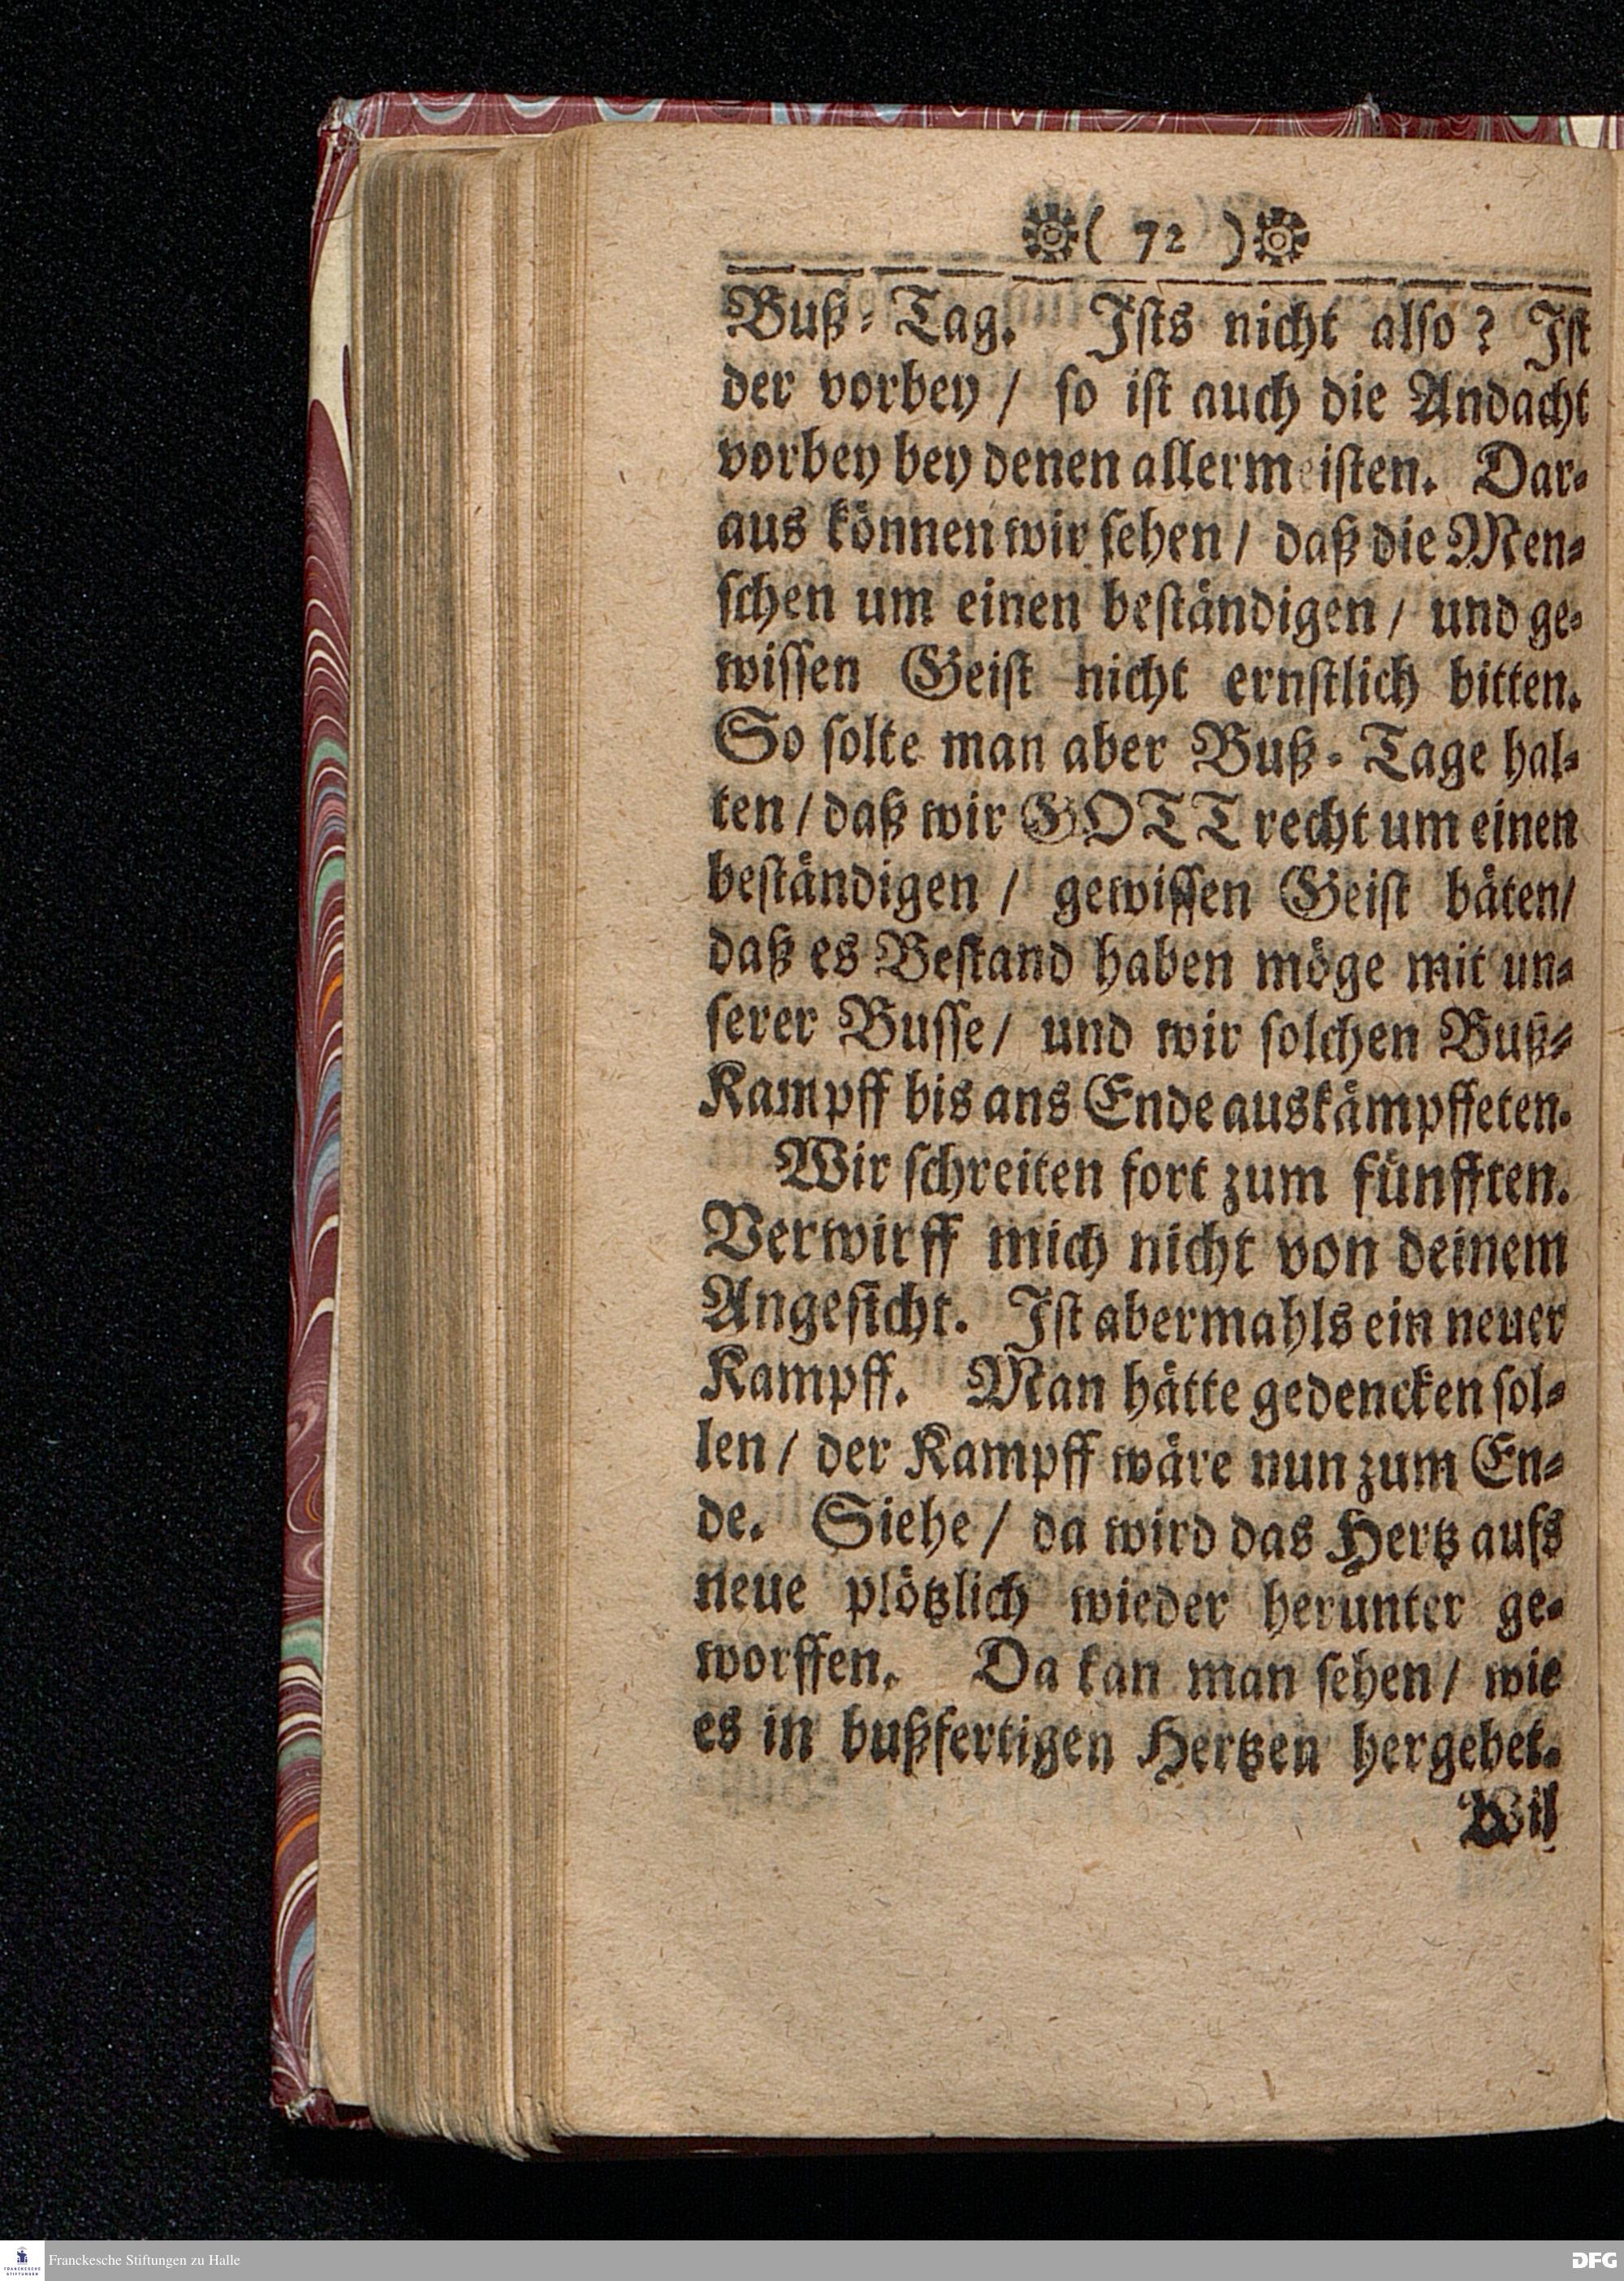 ( 72 )
Buß-Tag. Iſts nicht alſo? Iſt
der vorbey / ſo iſt auch die Andacht
vorbey bey denen allermeiſten. Dar-
aus können wir ſehen / daß die Men-
ſchen um einen beſtändigen / und ge-
wiſſen Geiſt nicht ernſtlich bitten.
So ſolte man aber Buß-Tage hal-
ten / daß wir GOTT recht um einen
beſtändigen / gewiſſen Geiſt bäten /
daß es Beſtand haben möge mit un-
ſerer Buſſe / und wir ſolchen Buß-
Kampff bis ans Ende auskämpffeten.
Wir ſchreiten fort zum fünfften.
Verwirff mich nicht von deinem
Angeſicht. Iſt abermahls ein neuer
Kampff. Man hätte gedencken ſol-
len / der Kampff wäre nun zum En-
de. Siehe / da wird das Hertz aufs
neue plötzlich wieder herunter ge-
worffen. Da kan man ſehen / wie
es in bußfertigen Hertzen hergehet.
Wil
Franckesche Stiftungen zu Halle
DFG